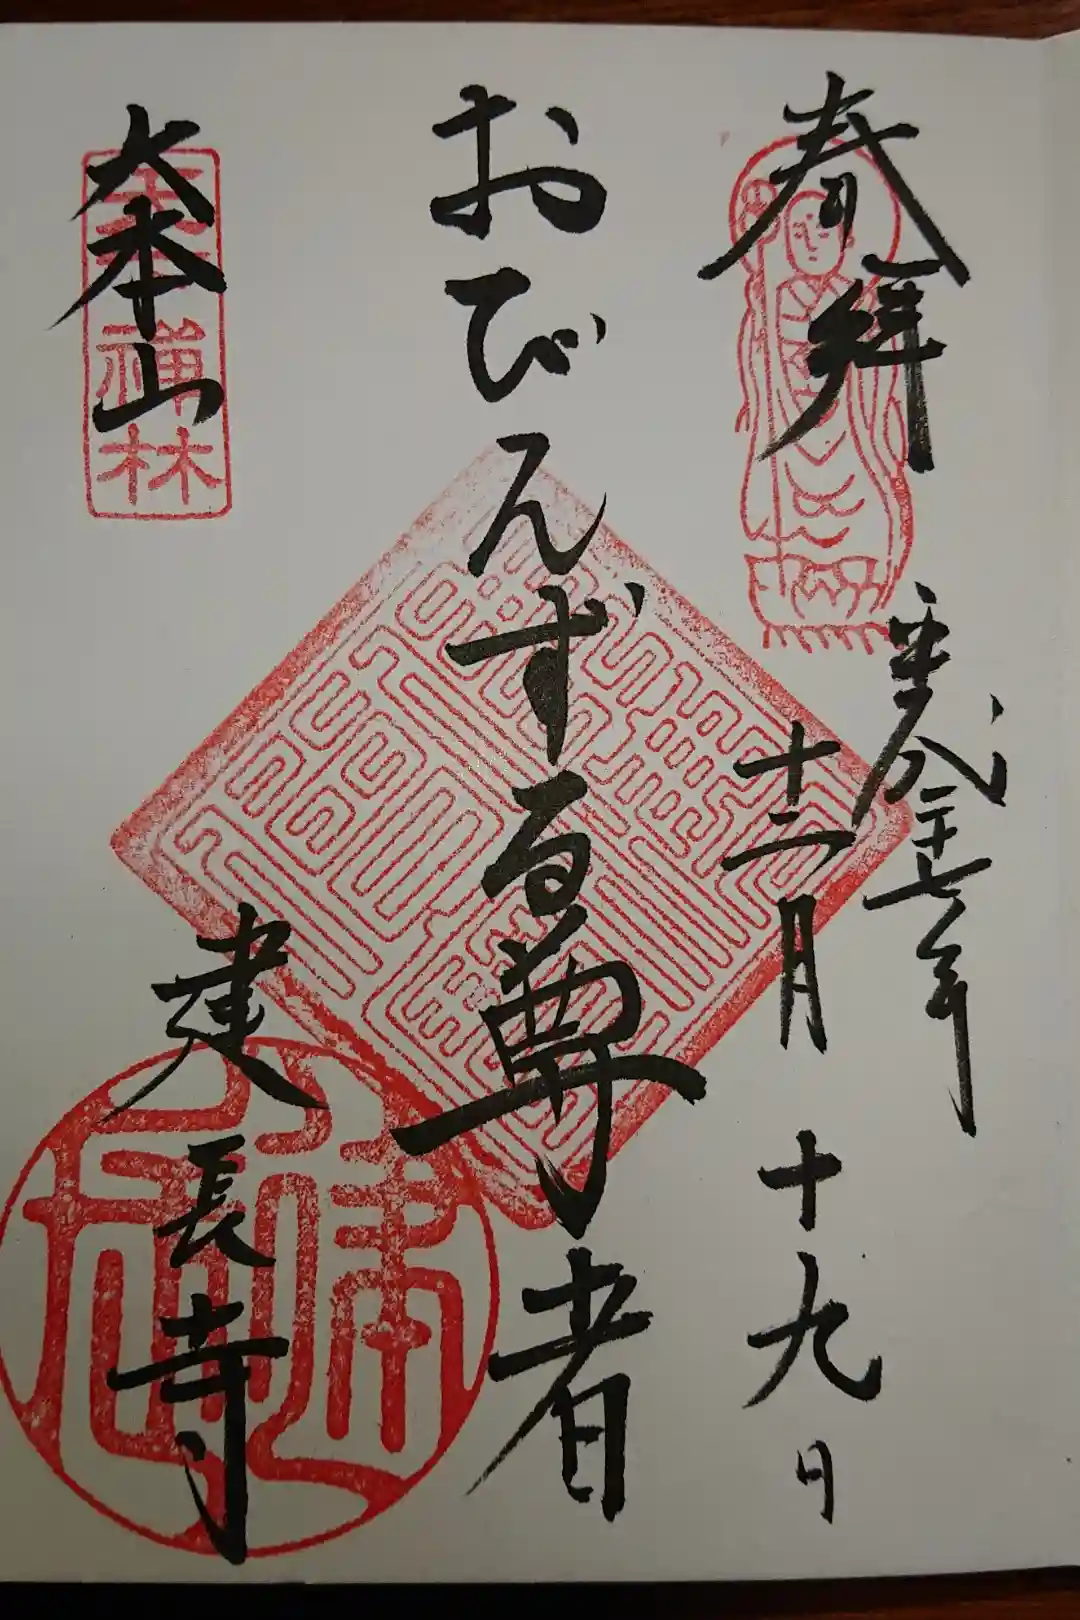 奉拝
平成二十七年
十二月十九日
おびんずる尊者
大本山
建長寺
天下禅林